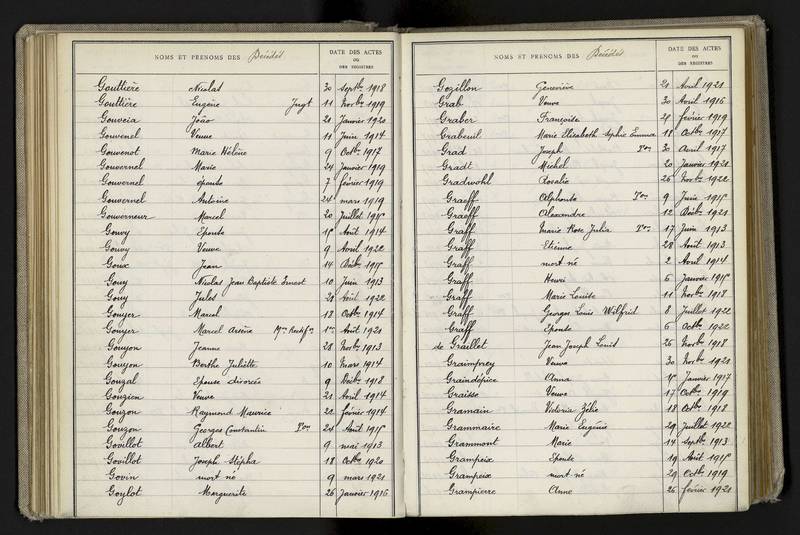 NOMS ET PRENOMS DES Décédés
DATE DES ACTES
OU
DES REGISTRES
Gaultière Nicolas 30 Septbre 1918
Gaultière Eugène Jugt 11 Novbre 1919
Gouveia João 21 Janvier 1920
Gouvenel Veuve 11 Juin 1914
Gouvenot Marie Hélène 9 Octbre 1917
Gouvernel Marie 24 Janvier 1919
Gouvernel épouse 7 février 1919
Gouvernel Antoine 24 mars 1919
Gouverneur Marcel 20 Juillet 1915
Gouvy Epouse 15 Août 1914
Gouvy Veuve 9 Avril 1922
Goux Jean 14 Décbre 1915
Gouy Nicolas Jean Baptiste Ernest 10 Juin 1913
Gouy Jules 21 Août 1922
Gouyer Marcel 18 Octbre 1914
Gouyer Marcel Arsène 1er Août 1921
Gouyon Jeanne 28 Novbre 1913
Gouyon Berthe Juliette 10 Mars 1914
Gouzal Epouse divorcée 9 Décbre 1918
Gouzien Veuve 21 Avril 1914
Gouzon Raymond Maurice 22 février 1914
Gouzon Georges Constantin Ton 24 Août 1915
Govillot Albert 9 mai 1913
Govillot Joseph Stépha 18 Octbre 1920
Govin mort né 9 mars 1921
Goylot Marguerite 26 Janvier 1916
NOMS ET PRENOMS DES Décédés
DATE DES ACTES
OU
DES REGISTRES
Gozillon Geneviève 21 Avril 1921
Grab Veuve 30 Avril 1916
Graber Françoise 21 février 1919
Grabeuil Marie Elisabeth Sophie Emma 18 Octbre 1917
Grad Joseph Ton 30 Avril 1917
Gradt Michel 20 Janvier 1921
Gradwohl Rosalie 26 Novbre 1922
Graeff Alphonse Ton 9 Juin 1915
Graeff Alexandre 12 Décbre 1921
Graff Marie Rose Julia Ton 17 Juin 1913
Graff Etienne 28 Août 1913
Graff mort né 2 Avril 1914
Graff Henri 6 Janvier 1915
Graff Marie Louise 11 Novbre 1918
Graff Georges Louis Wilfrid 8 Juillet 1922
Graff Epouse 6 Octbre 1922
de Graillet Jean Joseph Louis 26 Novbre 1918
Graimprey Veuve 30 Novbre 1921
Graindépice Anna 15 Janvier 1917
Graisse Veuve 17 Octbre 1919
Gramain Victoria Zélie 18 Octbre 1918
Grammaire Marie Eugénie 29 Juillet 1922
Grammont Marie 14 Septbre 1913
Grampeix Epouse 19 Août 1915
Grampeix mort né 29 Octbre 1919
Grampierre Anne 26 février 1921